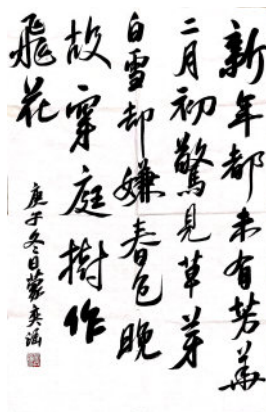 新年都未有芳華
二月初驚見草芽
白雪却嫌春色晚
故穿庭樹作
飛花
庚子冬日蒙奕涵